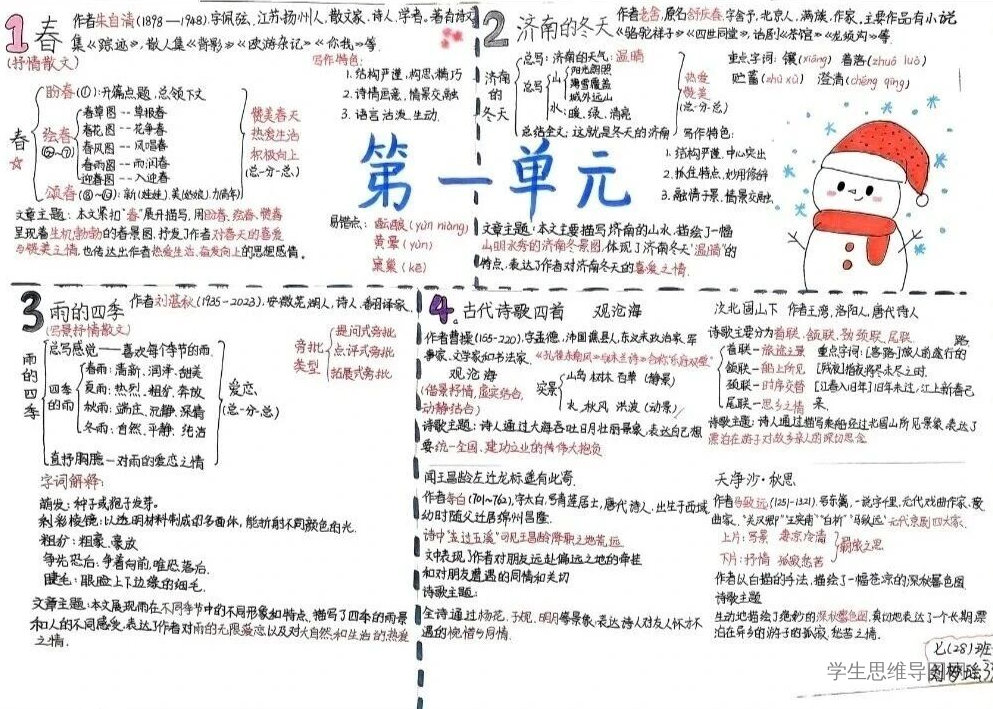 第一单元
1 春
作者朱自清(1898—1948),字佩弦,江苏扬州人,散文家,诗人,学者,著有诗文
集《踪迹》,散文集《背影》《欧游杂记》《你我》等.
(抒情散文)
写作特色:
1.结构严谨,构思精巧
2.诗情画意,情景交融
3.语言活泼、生动
春
盼春(①):开篇点题,总领下文
绘春
(②~⑦)
春草图--草报春
春花图--花争春
春风图--风唱春
春雨图--雨润春
迎春图--人迎春
颂春(⑧~⑩):新(娃娃),美(姑娘),力(青年)
赞美春天
热爱生活
积极向上
(总-分-总)
文章主题:本文紧扣"春"展开描写,用盼春、绘春、赞春
呈现着生机勃勃的春景图,抒发了作者对春天的喜爱
与赞美之情,也传达出作者热爱生活,奋发向上的思想感情。
易错点:酝酿(yùn niàng)
黄晕(yùn)
窠巢(kē)
2 济南的冬天
作者老舍,原名舒庆春,字舍予,北京人,满族,作家,主要作品有小说
《骆驼祥子》《四世同堂》,话剧《茶馆》《龙须沟》等.
济南的冬天
总写:济南的天气:温晴
分写:
山
阳光朗照
薄雪覆盖
城外远山
水:暖、绿、清亮
总结全文:这就是冬天的济南
热爱
赞美
(总-分-总)
重点字词:镶(xiāng) 着落(zhuó luò)
贮蓄(zhù xù) 澄清(chéng qīng)
写作特色:
1.结构严谨,中心突出
2.抓住特点,妙用修辞
3.融情于景,情景交融
文章主题:本文主要描写济南的山水,描绘了一幅
山明水秀的济南冬景图,体现了济南冬天"温晴"的
特点,表达了作者对济南冬天的喜爱之情.
3 雨的四季
作者刘湛秋(1935-2023),安徽芜湖人,诗人,翻译家.
(写景抒情散文)
雨的四季
总写感觉——喜欢每个季节的雨.
四季的雨
春雨:清新、润泽、甜美
夏雨:热烈、粗犷、奔放
秋雨:端庄、沉静、深情
冬雨:自然、平静、纯洁
直抒胸臆-对雨的爱恋之情
爱恋
(总-分-总)
旁批类型
提问式旁批
点评式旁批
拓展式旁批
字词解释:
萌发:种子或孢子发芽。
利彩棱镜:以透明材料制成的多面体,能折射不同颜色的光.
粗犷:粗豪、豪放
争先恐后:争着向前,唯恐落后.
睫毛:眼睑上下边缘的细毛.
文章主题:本文展现雨在不同季节中的不同形象和特点,描写了四季的雨景
和人的不同感受,表达了作者对雨的无限爱恋以及对大自然和生活的热爱
之情.
4. 古代诗歌四首 观沧海
作者曹操(155-220),字孟德,沛国谯县人,东汉末政治家、军
事家、文学家和书法家.《孔雀东南飞》与《木兰诗》合称"乐府双璧"
观沧海
(借景抒情,虚实结合,
动静结合)
实景
山岛 树林 百草 (静景)
水、秋风、洪波(动景)
诗歌主题:诗人通过大海吞吐日月壮丽景象,表达自己想
要统一全国,建功立业的伟伟大抱负
次北固山下 作者王湾,洛阳人,唐代诗人
诗歌主要分首联、颔联、颈联、尾联.
首联-旅途之景
颔联-船上所见
颈联-时序交替
尾联-思乡之情
重点字词:[客路]旅人前途行的路.
[残夜]指夜将尽未尽之时.
[江春入旧年]旧年未过,江上新春已来.
诗歌主题:诗人通过描写乘船经过北固山所见景象,表达了
漂泊在游子对故乡亲人的深切思念.
闻王昌龄左迁龙标遥有此寄.
作者李白(701~762),字太白,号青莲居士,唐代诗人,出生于西域
幼时随父迁居绵州昌隆.
诗中"龙过五溪"可见王昌龄降职之地荒远.
文中表现了作者对朋友远赴偏远之地的牵挂
和对朋友遭遇的同情和关切
诗歌主题:
全诗通过杨花、子规、明月等景象,表达诗人对友人怀才不
遇的惋惜与同情.
天净沙·秋思.
作者马致远,(1251-1321),号东篱,一说字千里,元代戏曲作家,散
曲家."关汉卿""王实甫""白朴""马致远"元代京剧四大家.
上片:写景 凄凉冷清
下片:抒情 孤寂愁苦
羁旅之思
作者以白描的手法,描绘了一幅苍凉的深秋暮色图
诗歌主题
生动地描绘了绝妙的深秋暮色图,真切地表达了一个长期漂
泊在异乡的游子的孤寂,愁苦之情.
七(28)班
学生思维导图网